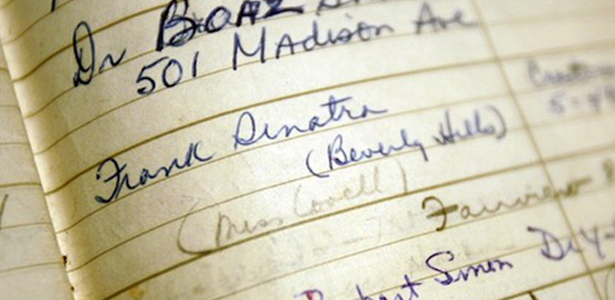 Dr BOAZ
501 MADison Ave
Frank Sinatra
(Beverly Hills)
(Miss Lovell)
Fairview 8
Robert Simon De 4-